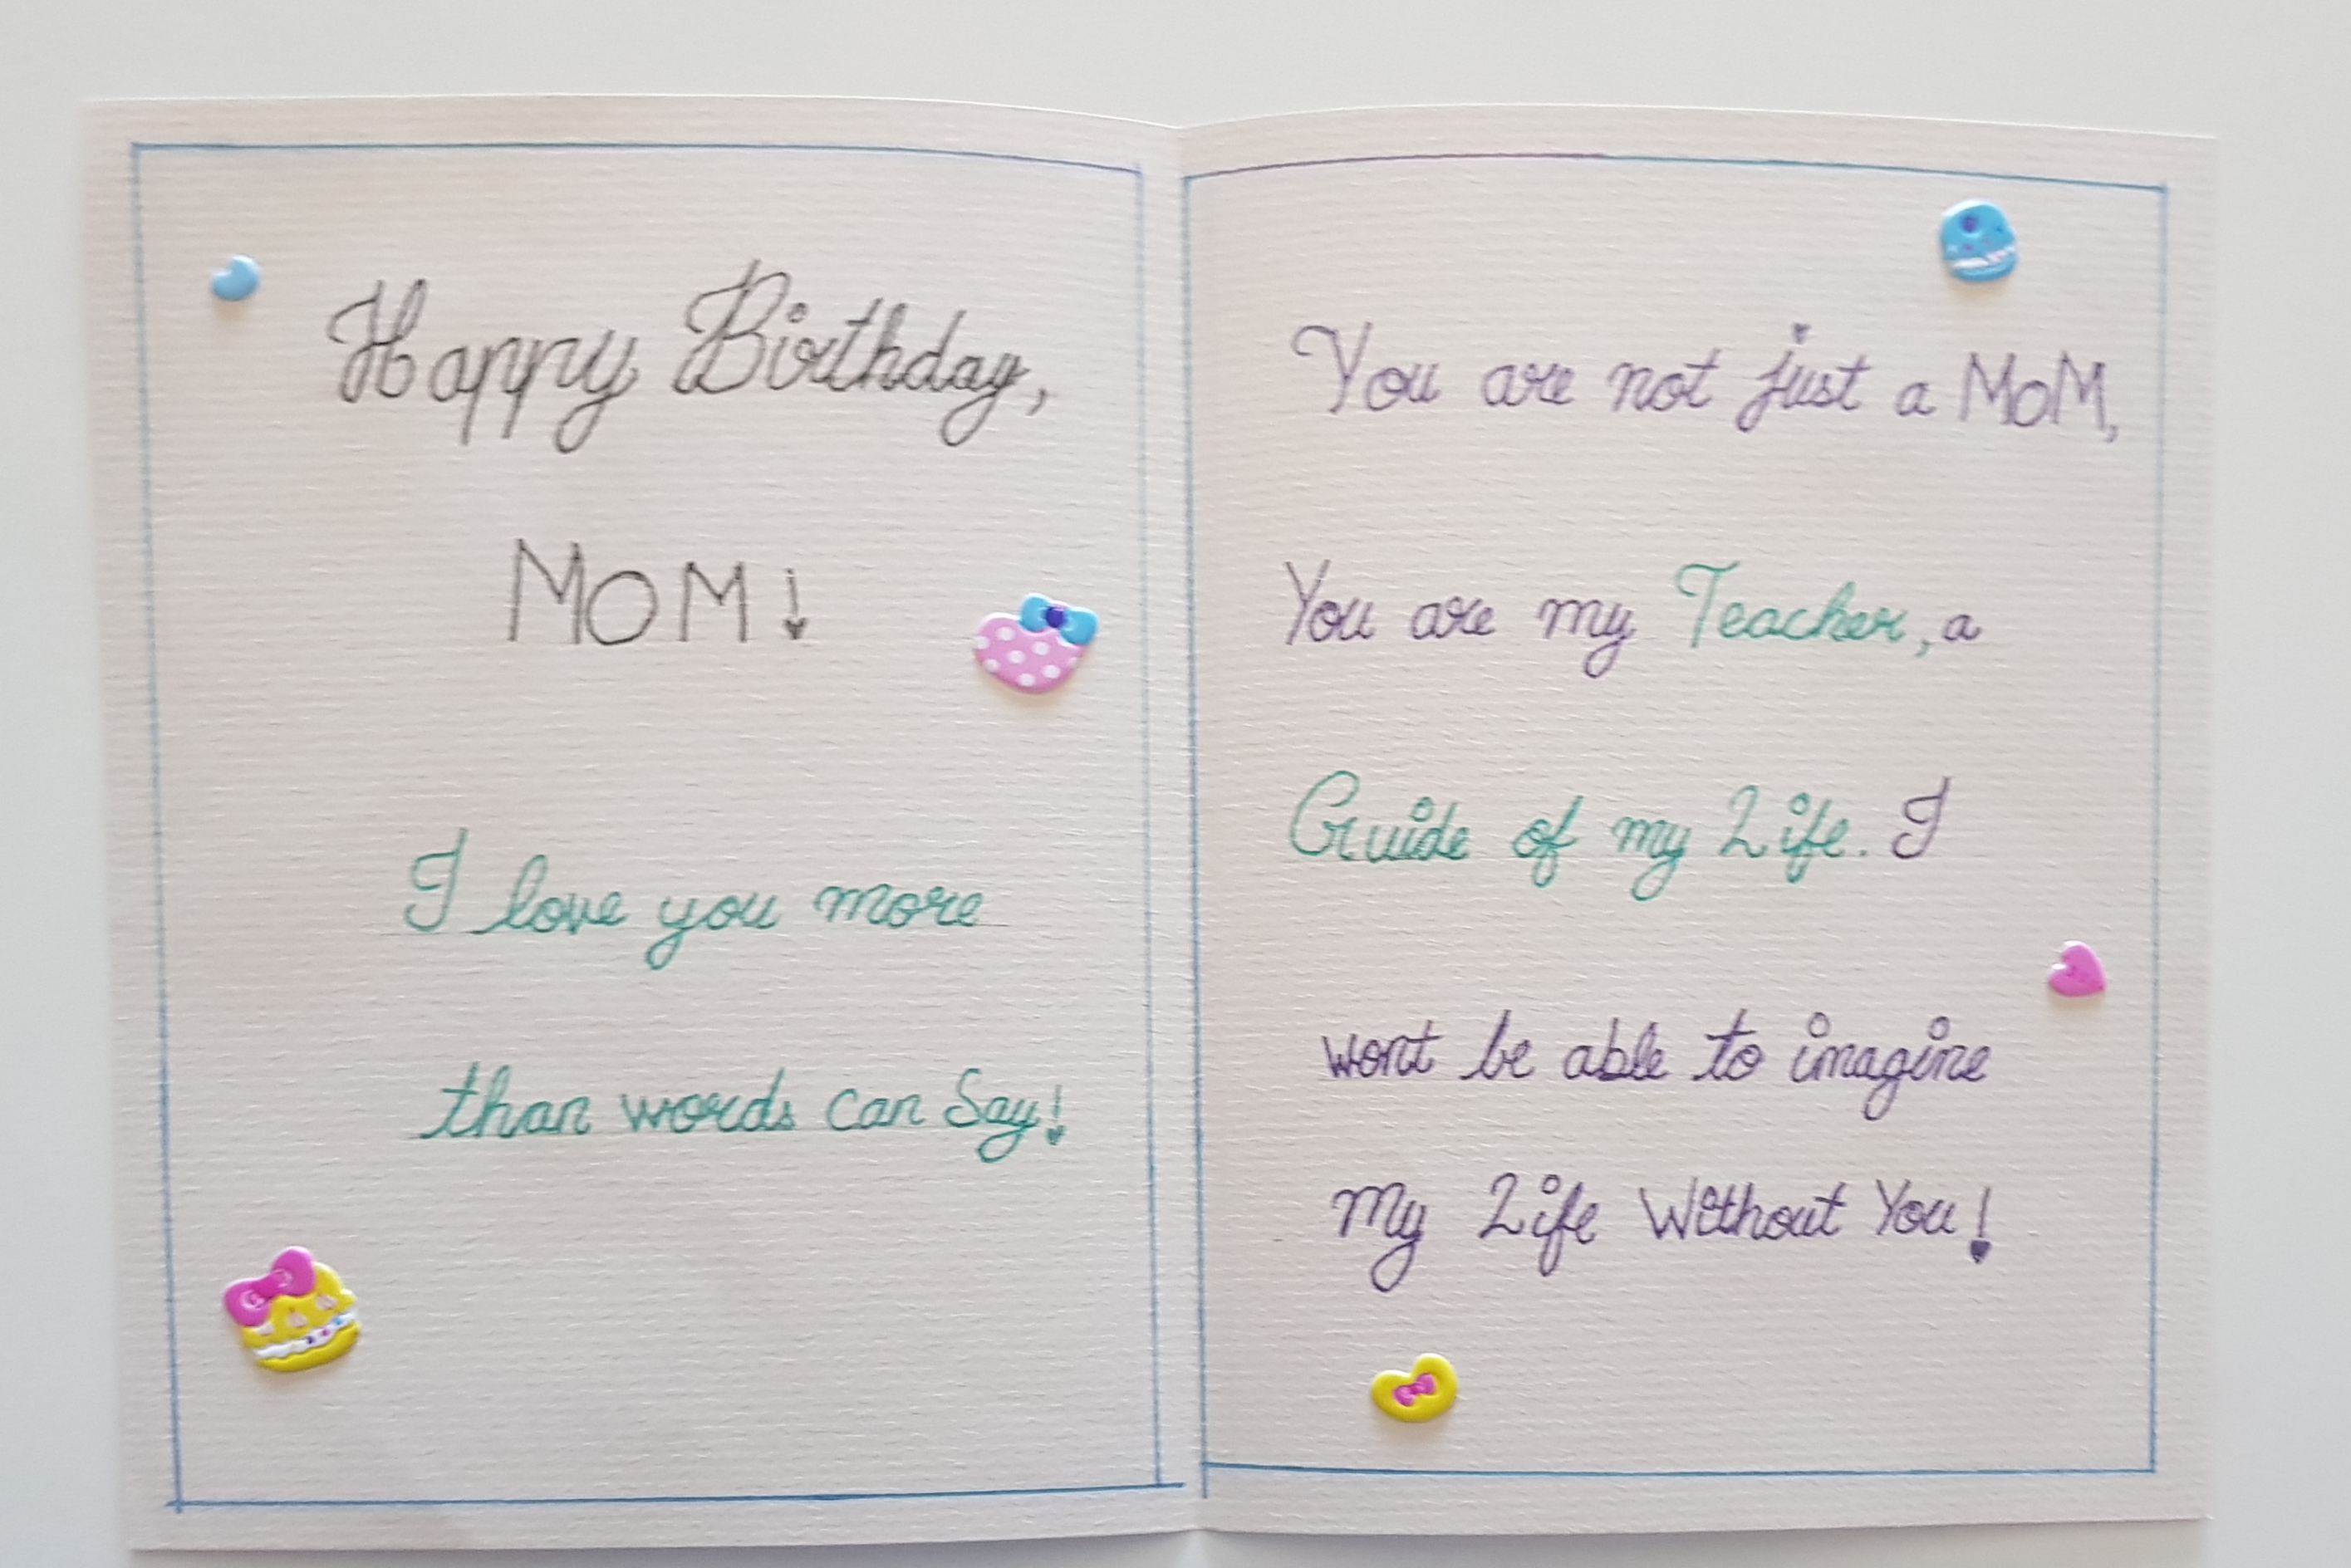 Happy Birthday,
MOM!
I love you more
than words can Say!
You are not just a MoM,
You are my Teacher, a
Guide of my Life. I
wont be able to imagine
my Life Without You!